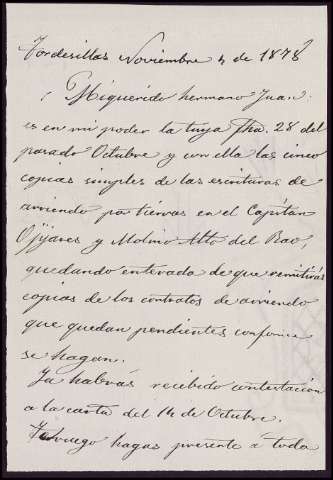 Tordesillas Noviembre 4 de 1878
Mi querido hermano Juan:
es en mi poder la tuya fha. 28 del
pasado Octubre y con ella las cinco
copias simples de las escrituras de
arriendo por tierras en el Capitán
Ojijares y Molino Alto del Rao,
quedando enterada de que remitirás
copias de los contratos de arriendo
que quedan pendientes conforme
se hagan.
Ya habrás recibido contestacion
a la carta del 14 de Octubre.
Te ruego hagas presente a toda